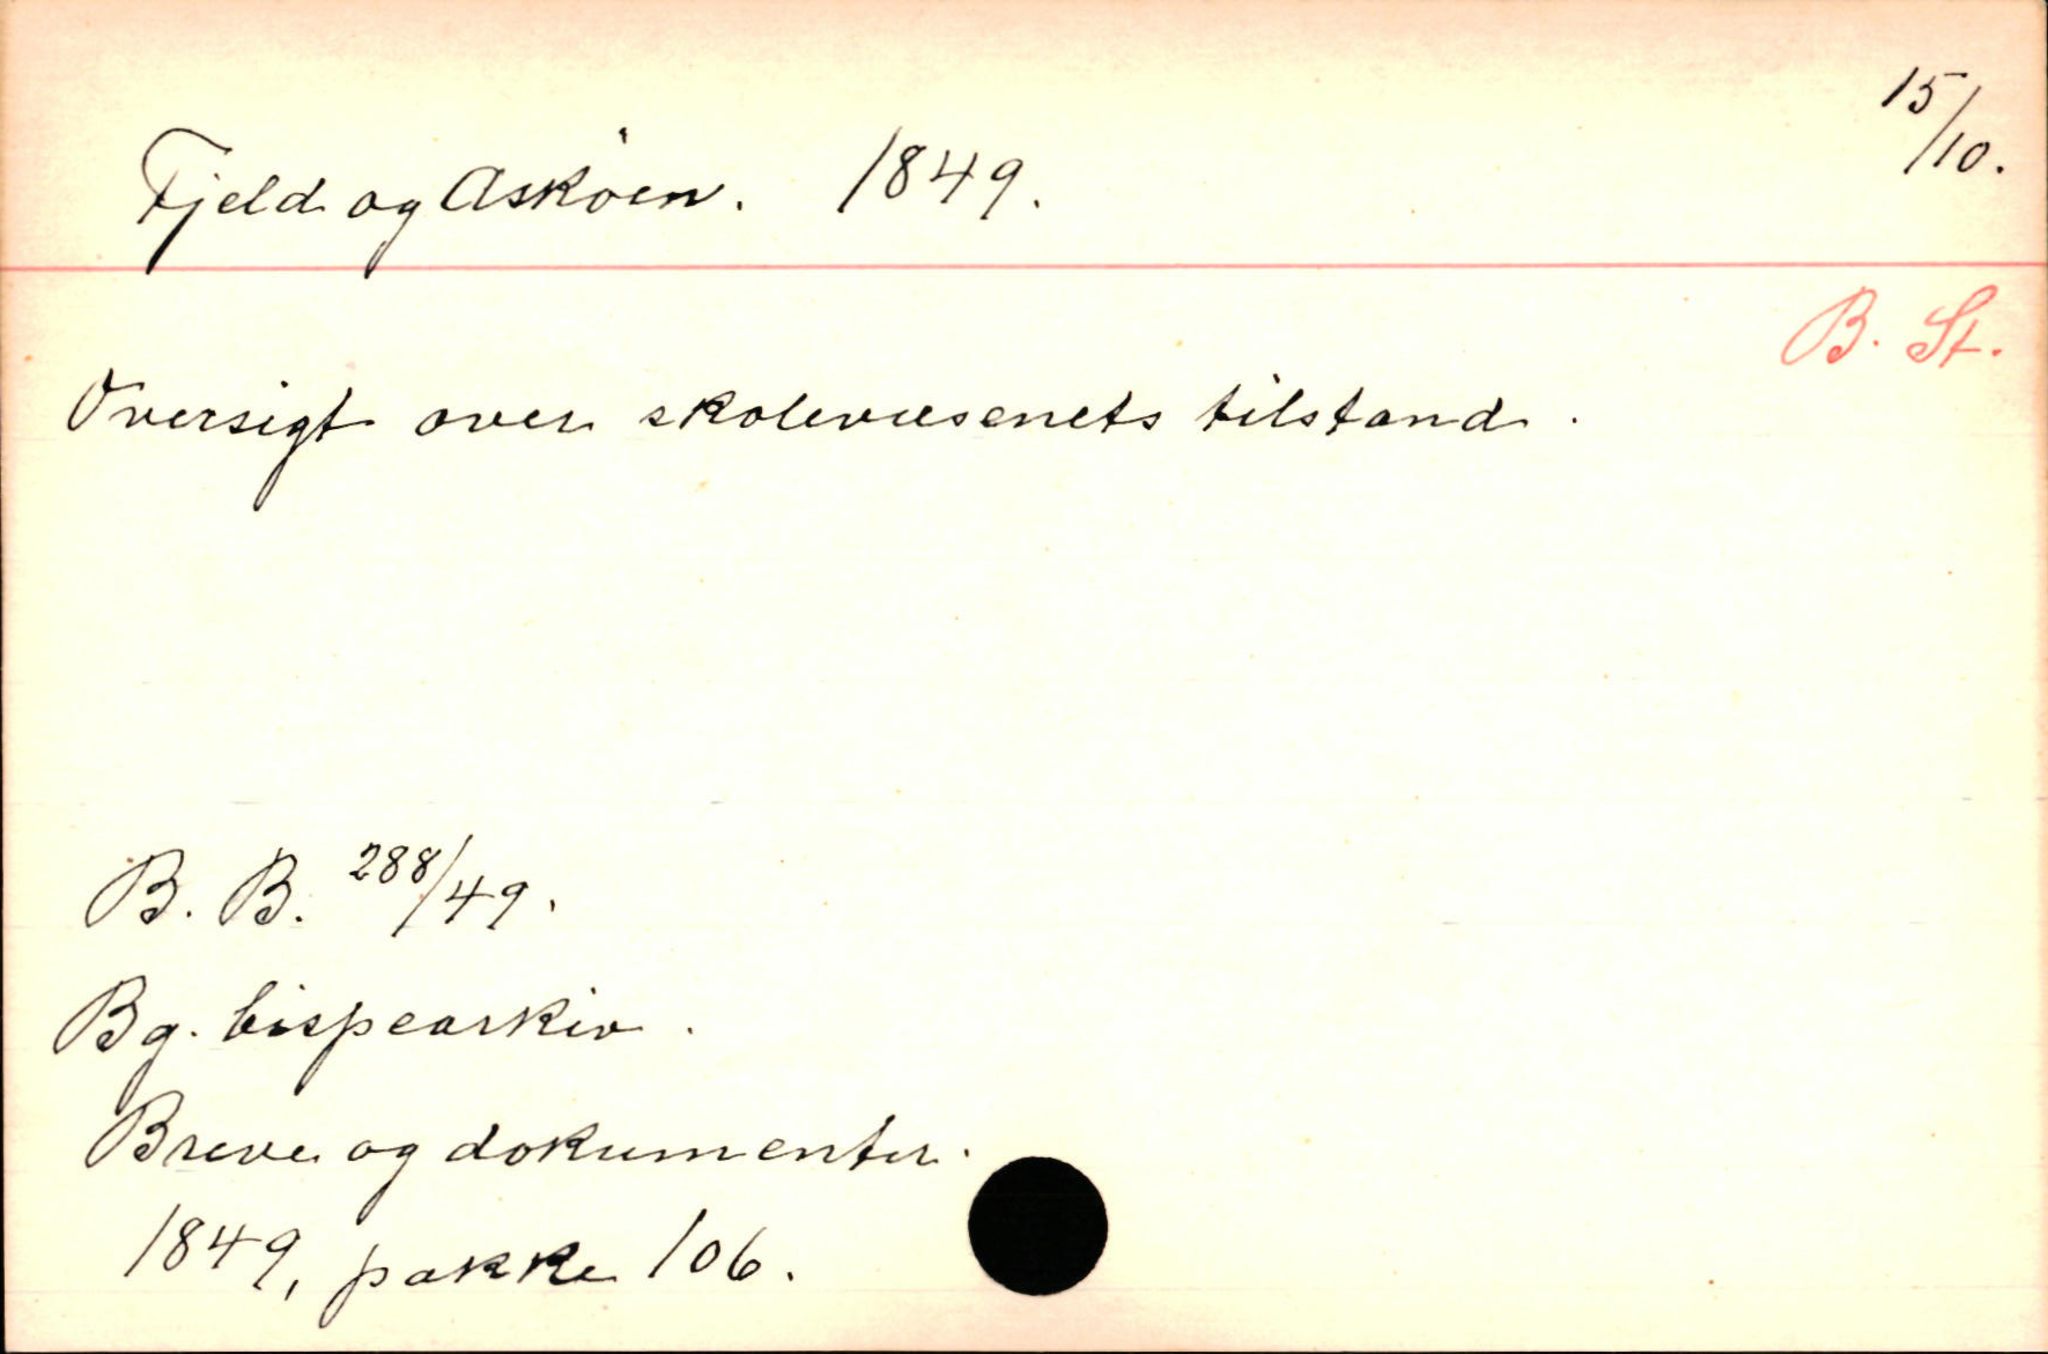 15/10.
Fjeld og Askøen. 1849.
B. St.
Oversigt over skolevæsenets tilstand.
B. B. 288/49.
Bg. bispearkiv.
Breve og dokumenter.
1849, pakke 106.